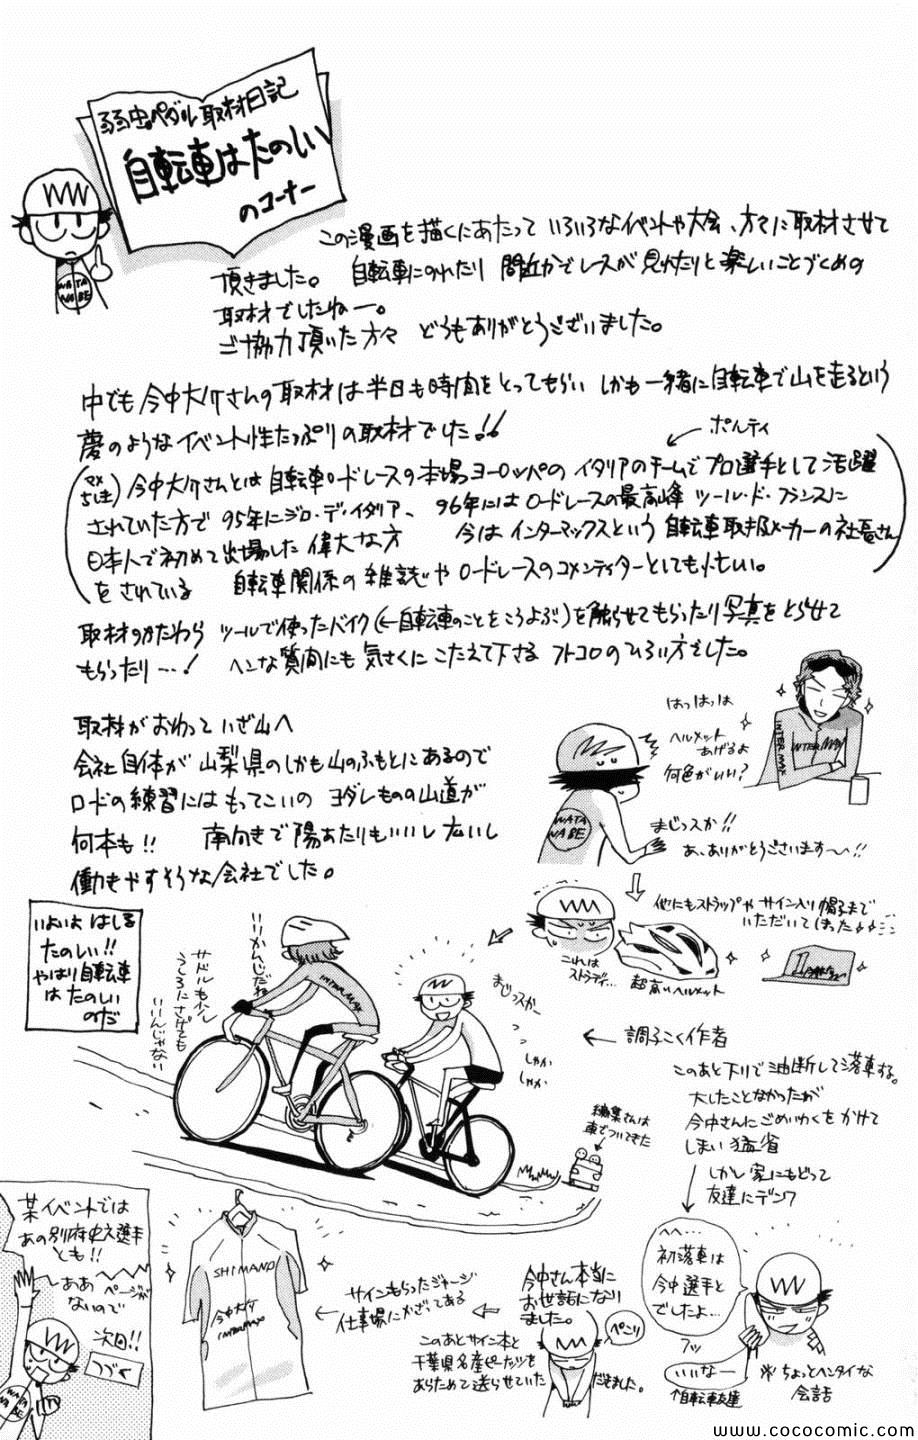 弱虫ペダル取材日記
自転車はたのしい
のコーナー
WATA
NABE
この漫画を描くにあたって いろいろなイベントや大会、方々に取材させて
頂きました。 自転車にのれたり 間近かでレースが見れたりと楽しいことづくめの
取材でしたねー。
ご協力頂いた方々 どうもありがとうございました。
中でも今中大介さんの取材は半日も時間をとってもらい しかも一緒に自転車で山を走るという
夢のようなイベント性たっぷりの取材でした!!
ポルティ
(マメちしき) 今中大介さんとは自転車ロードレースの本場ヨーロッパのイタリアのチームでプロ選手として活躍
されていた方で 95年にジロ・デ・イタリア、 96年にはロードレースの最高峰 ツール・ド・フランスに
日本人で初めて出場した偉大な方 今はインターマックスという自転車取扱メーカーの社長さん
をされている 自転車関係の雑誌やロードレースのコメンテイターとしても忙しい。
取材のかたわら ツールで使ったバイク(←自転車のことをこうよぶ)を触らせてもらったり写真をとらせて
もらったり…! ヘンな質問にも気さくにこたえて下さるフトコロのひろい方でした。
取材がおわっていざ山へ
会社自体が山梨県のしかも山のふもとにあるので
ロードの練習にはもってこいの ヨダレものの山道が
何本も!! 南向きで陽あたりもいいし広いし
働きやすそうな会社でした。
はっはっは
ヘルメット
あげるよ
何色がいい?
INTER MAX
INTERMAX
WATA
NABE
まじっスか!!
あ、ありがとうございます〜!!
他にもストラップやサイン入り帽子まで
いただいてしまった
これは
ストラディ…
超高いヘルメット
いよいよはしる
たのしい!!
やはり自転車
はたのしい
のだ
いいかんじだね
サドルもう少し
うしろにさげても
いいんじゃない
INTERMAX
まじっスかー
しゃか
しゃか
← 調子こく作者
このあと下りで油断して落車する。
大したことなかったが
今中さんにごめいわくをかけて
しまい猛省
しかし家にもどって
友達にデンワ
編集さんは
車でついてきた
へへ…
初落車は
今中選手と
でしたよ…
フッ
いいなー
↑自転車友達
※ちょっとヘンタイな
会話
今中さん本当に
お世話になり
ました。
ペこり
このあとサイン本と
千葉県名産ピーナッツを
あらためて送らせていただきました。
サインもらったジャージ
仕事場にかざってある
SHIMANO
今中大介
INTERMAX
某イベントでは
あの別府史之選手
とも!!
ああ ページが
ないので
次回!!
つづく
WATA
NABE
www.cococomic.com